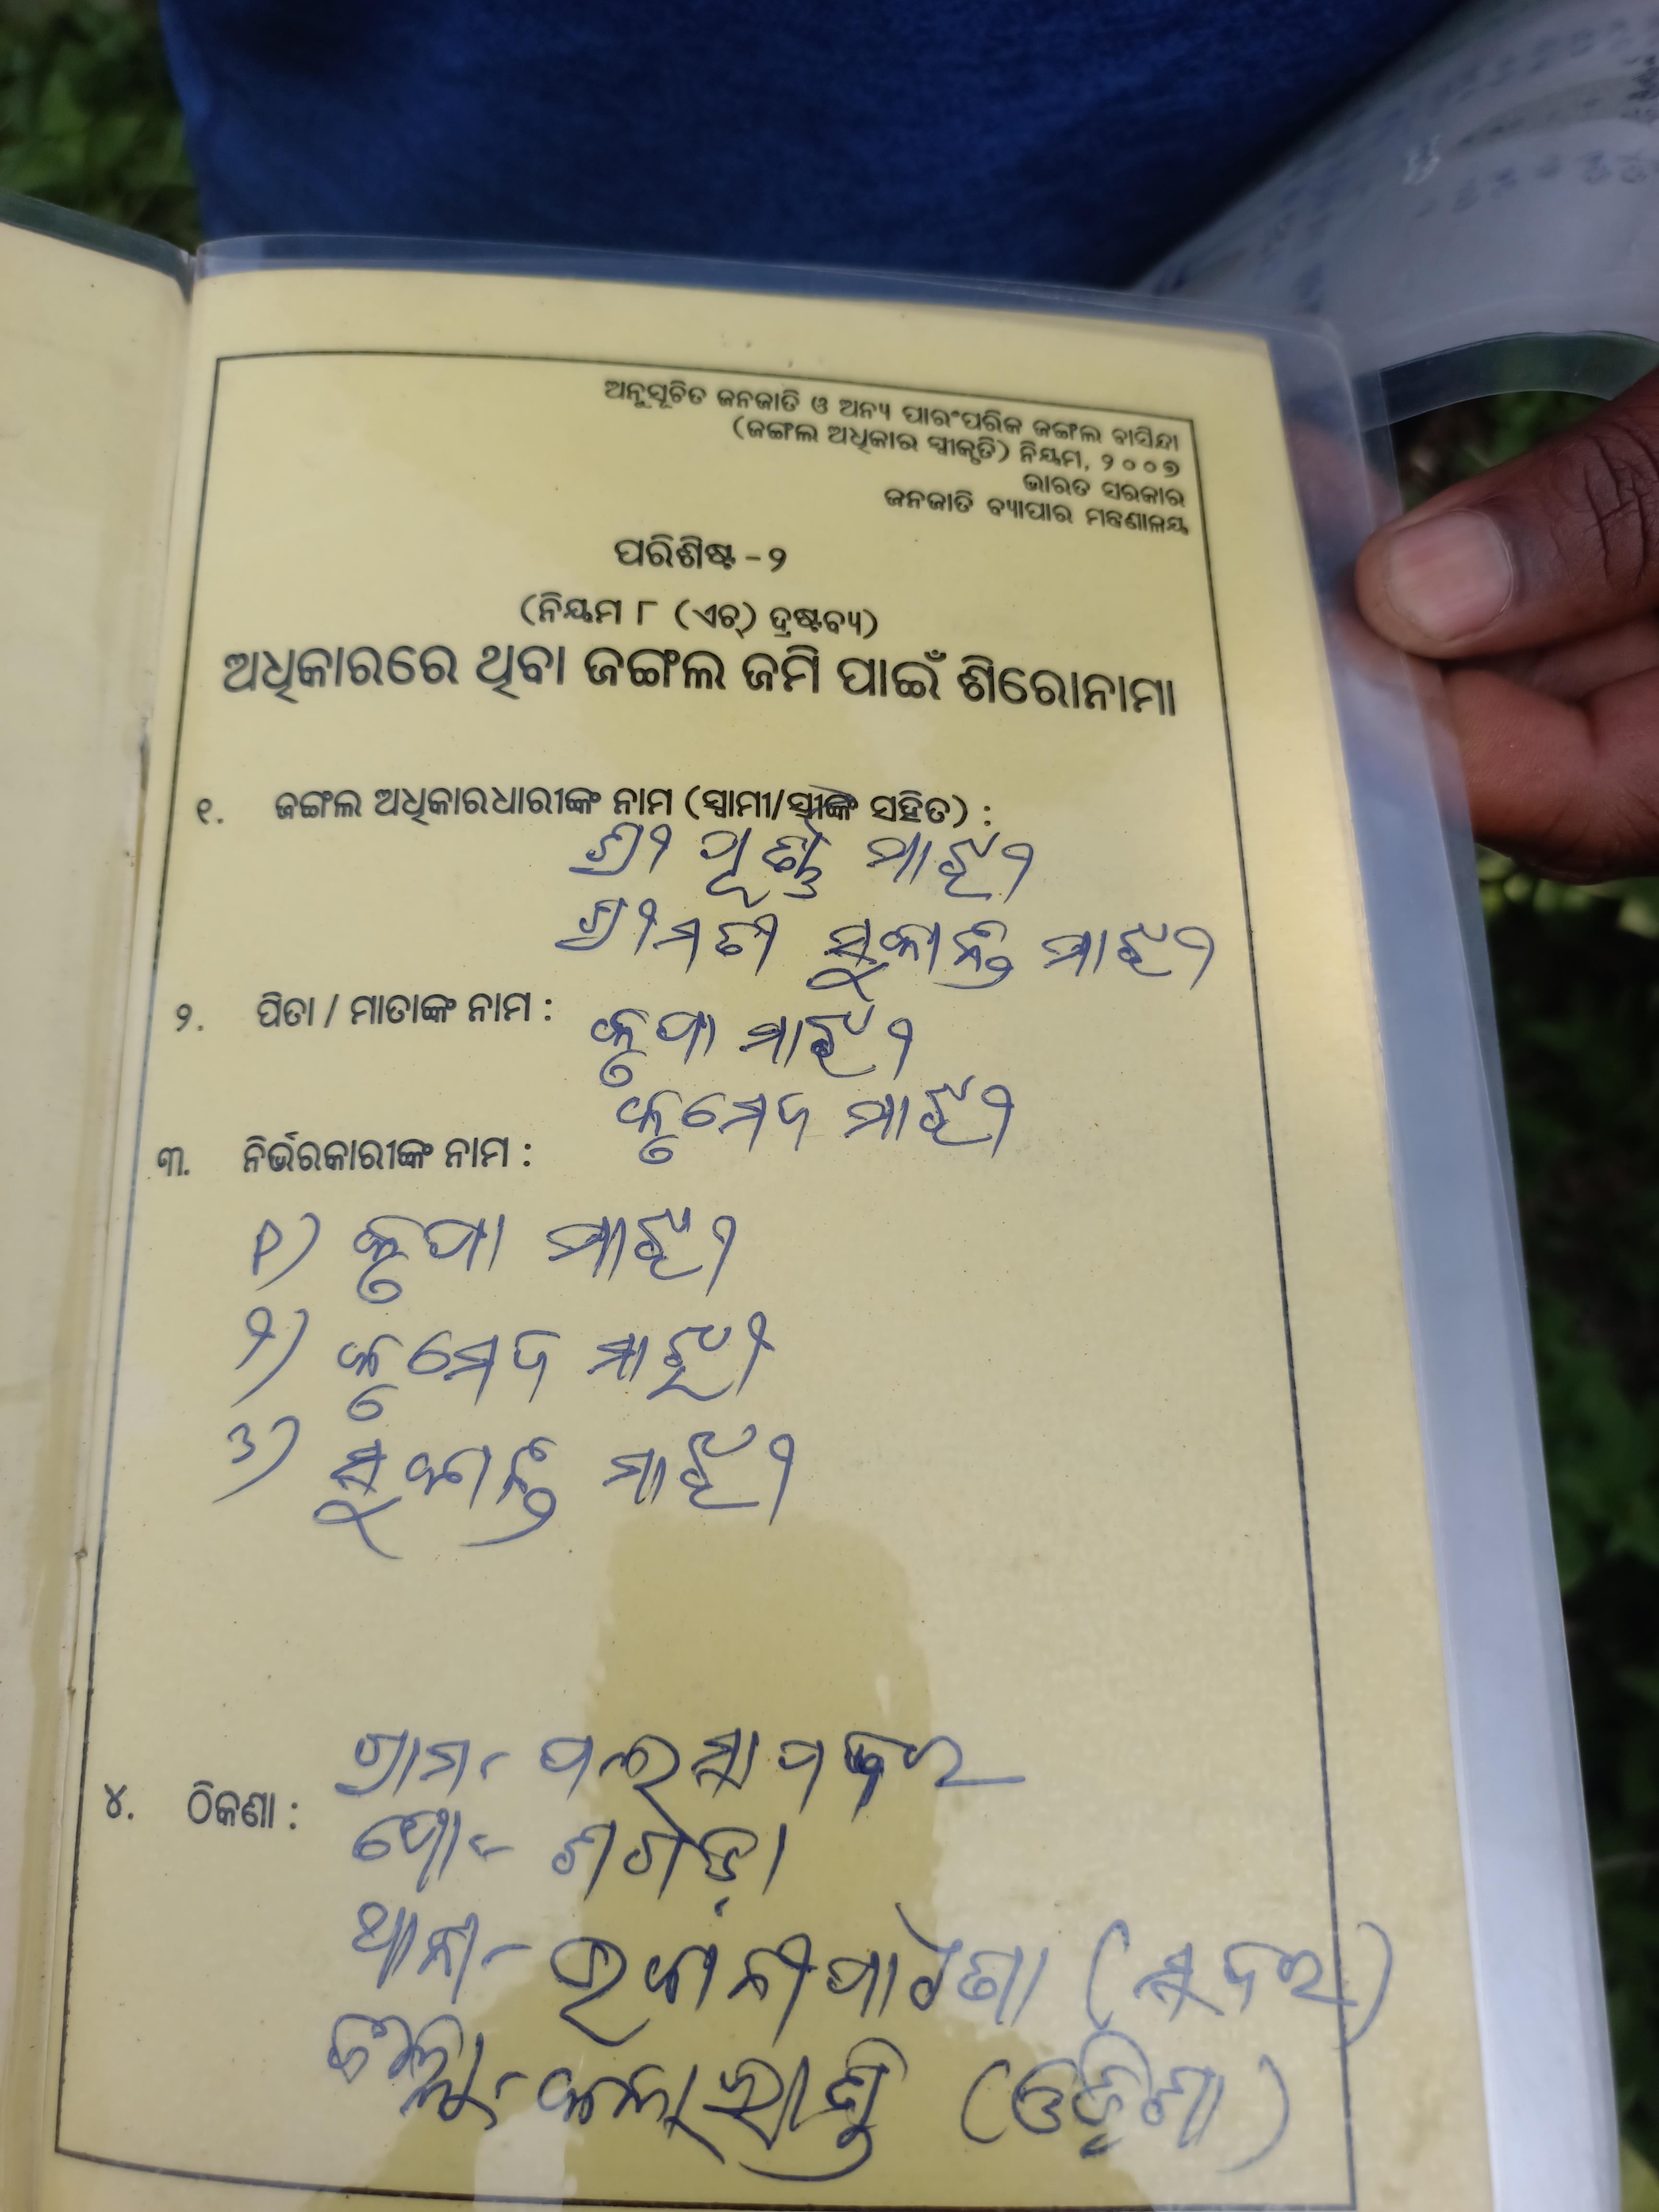 ଅନୁସୂଚିତ ଜନଜାତି ଓ ଅନ୍ୟ ପାରଂପରିକ ଜଙ୍ଗଲ ବାସିନ୍ଦା
(ଜଙ୍ଗଲ ଅଧିକାର ସ୍ୱୀକୃତି) ନିୟମ, ୨୦୦୭
ଭାରତ ସରକାର
ଜନଜାତି ବ୍ୟାପାର ମନ୍ତ୍ରଣାଳୟ
ପରିଶିଷ୍ଟ - ୨
(ନିୟମ ୮ (ଏଚ୍) ଦ୍ରଷ୍ଟବ୍ୟ)
ଅଧିକାରରେ ଥିବା ଜଙ୍ଗଲ ଜମି ପାଇଁ ଶିରୋନାମା
୧. ଜଙ୍ଗଲ ଅଧିକାରଧାରୀଙ୍କ ନାମ (ସ୍ୱାମୀ/ସ୍ତ୍ରୀଙ୍କ ସହିତ) :
ଶ୍ରୀ ପୂର୍ଣ୍ଣ ମାଝୀ
ଶ୍ରୀମତୀ ସୁକାନ୍ତି ମାଝୀ
୨. ପିତା / ମାତାଙ୍କ ନାମ : କୃପା ମାଝୀ
ମାଝୀ
୩. ନିର୍ଭରକାରୀଙ୍କ ନାମ :
୧) କୃପା ମାଝୀ
୨) ମାଝୀ
୩) ସୁକାନ୍ତି ମାଝୀ
ଗ୍ରାମ-
୪. ଠିକଣା : ପୋ- ଶଗଡ଼ା
ଥାନା- ଭବାନୀପାଟଣା (ସଦର)
ଜିଲ୍ଲା- କଳାହାଣ୍ଡି (ଓଡ଼ିଶା)